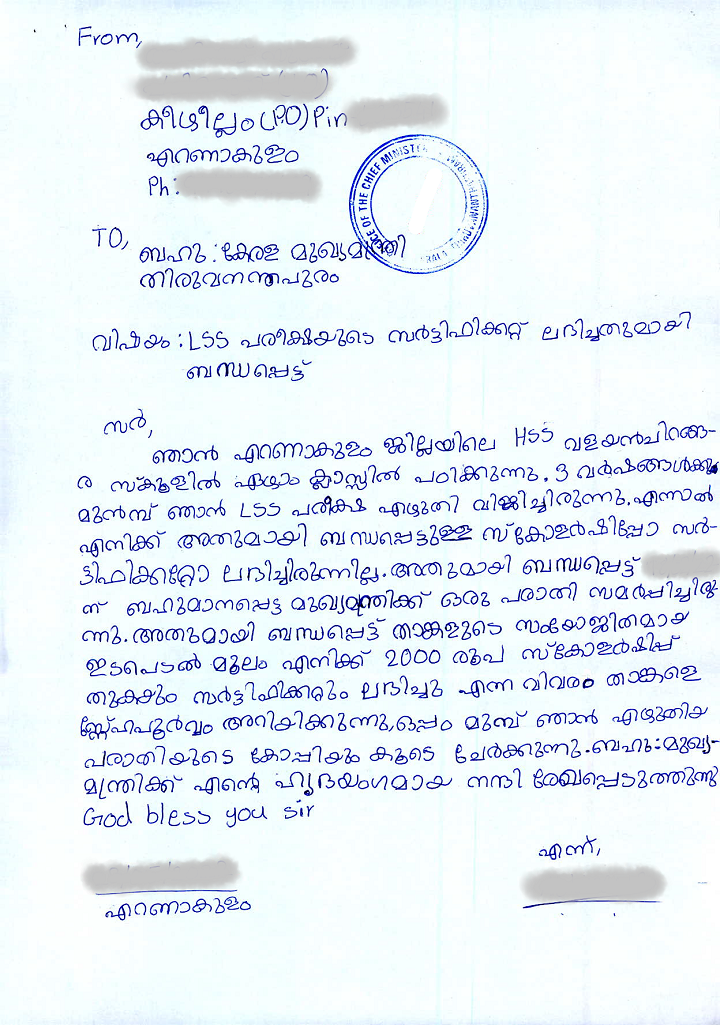 From,
കീഴില്ലം (P.O) Pin
എറണാകുളം
Ph:
OFFICE OF THE CHIEF MINISTER
TO,
ബഹു : കേരള മുഖ്യമന്ത്രി
തിരുവനന്തപുരം
വിഷയം : LSS പരീക്ഷയുടെ സർട്ടിഫിക്കറ്റ് ലഭിച്ചതുമായി
ബന്ധപ്പെട്ട്
സർ,
ഞാൻ എറണാകുളം ജില്ലയിലെ HSS വളയൻചിറങ്ങ-
ര സ്കൂളിൽ ഏഴാം ക്ലാസ്സിൽ പഠിക്കുന്നു. 3 വർഷങ്ങൾക്കു
മുൻമ്പ് ഞാൻ LSS പരീക്ഷ എഴുതി വിജയിച്ചിരുന്നു. എന്നാൽ
എനിക്ക് അതുമായി ബന്ധപ്പെട്ടുള്ള സ്കോളർഷിപ്പോ സർ-
ട്ടിഫിക്കറ്റോ ലഭിച്ചിരുന്നില്ല. അതുമായി ബന്ധപ്പെട്ട്
ന് ബഹുമാനപ്പെട്ട മുഖ്യമന്ത്രിക്ക് ഒരു പരാതി സമർപ്പിച്ചിരു
ന്നു. അതുമായി ബന്ധപ്പെട്ട് താങ്കളുടെ സംയോജിതമായ
ഇടപെടൽ മൂലം എനിക്ക് 2000 രൂപ സ്കോളർഷിപ്പ്
തുകയും സർട്ടിഫിക്കറ്റും ലഭിച്ചു എന്ന വിവരം താങ്കളെ
സ്നേഹപൂർവം അറിയിക്കുന്നു, ഒപ്പം മുമ്പ് ഞാൻ എഴുതിയ
പരാതിയുടെ കോപ്പിയും കൂടെ ചേർക്കുന്നു. ബഹു: മുഖ്യ-
മന്ത്രിക്ക് എന്റെ ഹൃദയംഗമായ നന്ദി രേഖപ്പെടുത്തുന്നു
God bless you sir
എന്ന്,
എറണാകുളം